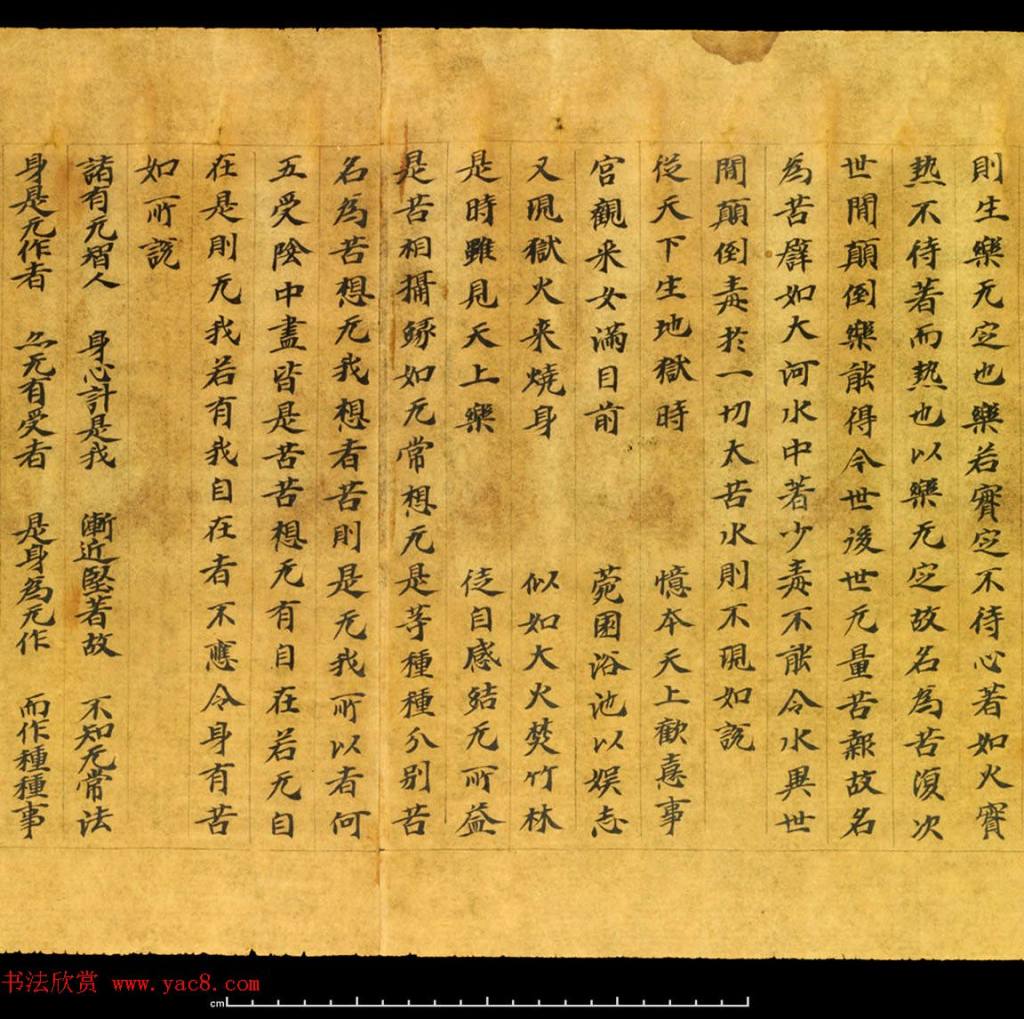 則生樂无定也樂若實定不待心著如火實
熱不待著而熱也以樂无定故名為苦須次
世間顛倒樂能得今世後世无量苦報故名
為苦譬如大河水中著少毒不能令水異世
間顛倒毒於一切大苦水則不現如說
從天下生地獄時 憶本天上歡憙事
宮觀采女滿目前 菀園浴池以娛志
又現獄火来燒身 似如大火焚竹林
是時雖見天上樂 徒自感結无所益
是苦相攝緣如无常想无是等種種分別苦
名為苦想无我想者苦則是无我所以者何
五受陰中盡皆是苦苦想无有自在若无自
在是則无我若有我自在者不應令身有苦
如所說
諸有无智人 身心計是我 漸近堅著故 不知无常法
身是无作者 亦无有受者 是身為无作 而作種種事
书法欣赏 www.yac8.com
cm